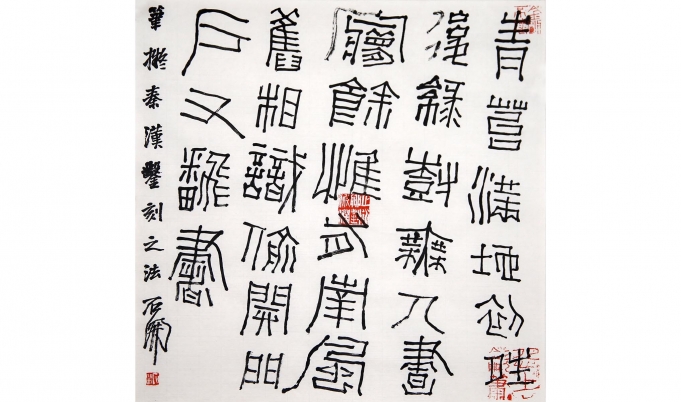 青苔滿地初晴
後綠樹無人晝
夢餘惟有南風
舊相識偷開門
戶又翻書
筆擬秦漢鑿刻之法 石